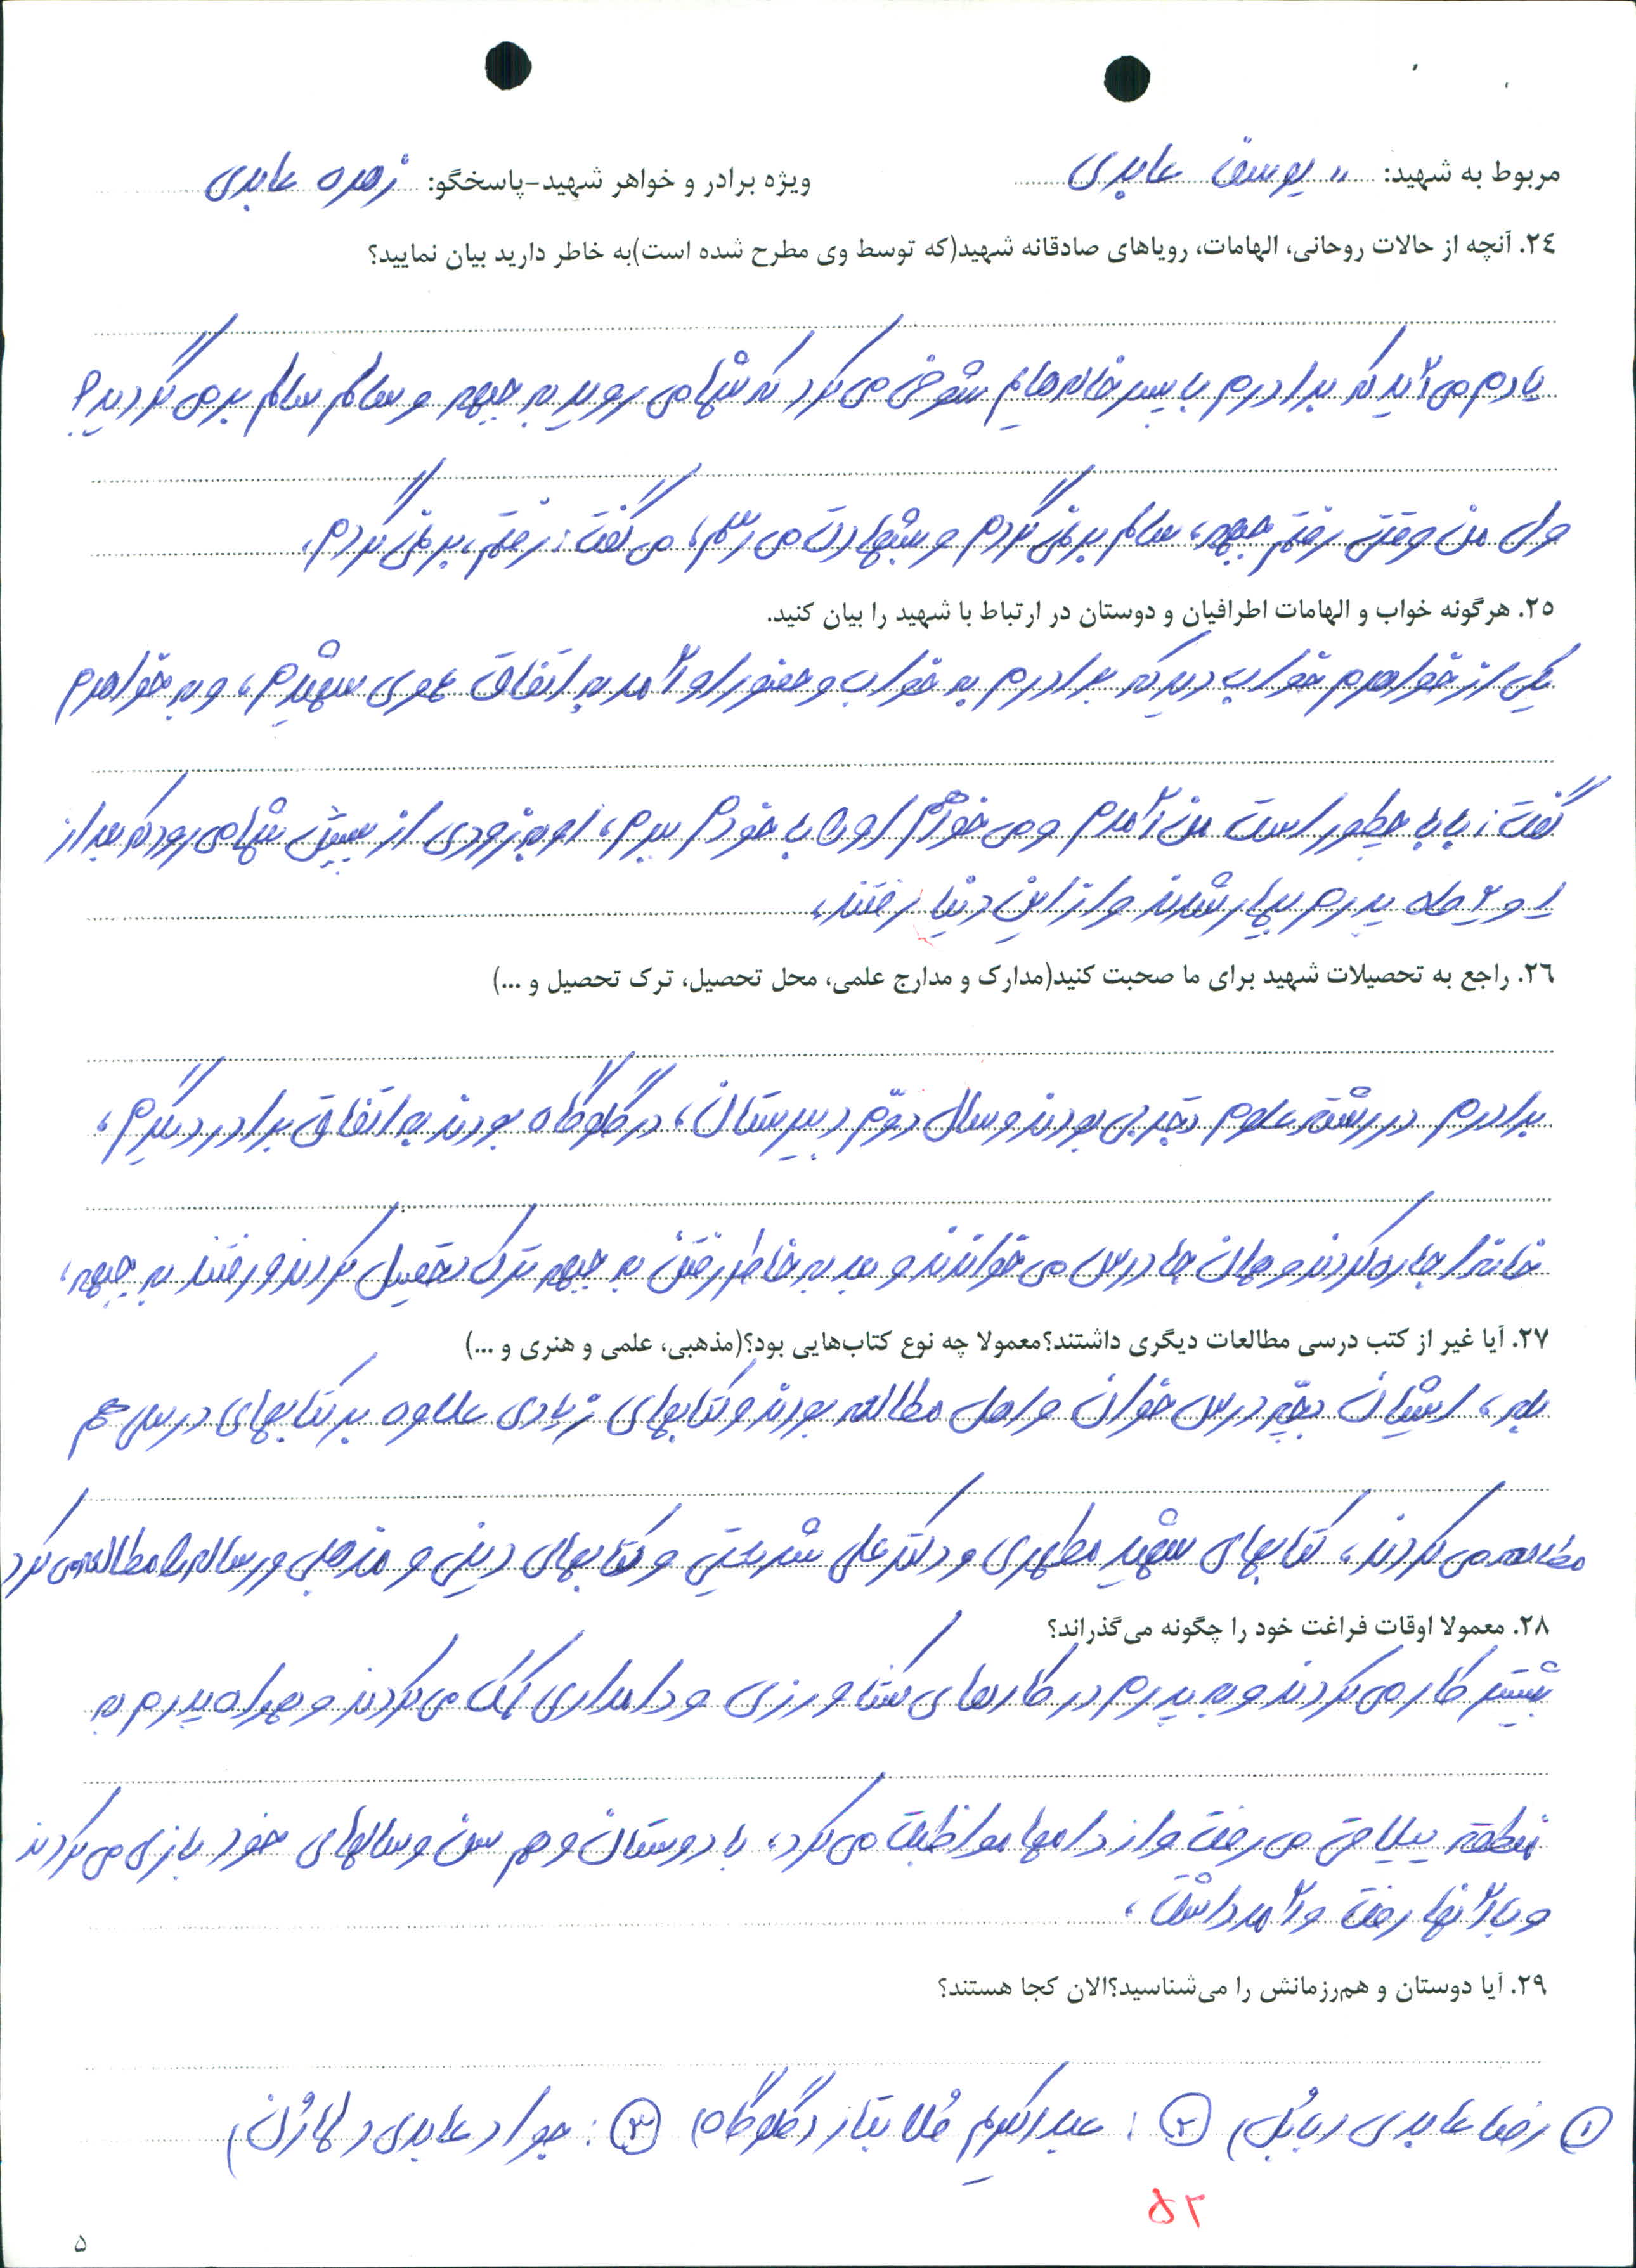 مربوط به شهید: یوسف عابدی ویژه برادر و خواهر شهید-پاسخگو: زهره عابدی
٢٤. آنچه از حالات روحانی، الهامات، رویاهای صادقانه شهید(که توسط وی مطرح شده است)به خاطر دارید بیان نمایید؟
یادم می آید که برادرم با پسرخاله هایم شوخی می کرد که شما می روید به جبهه و سالم سالم برمی گردید؟
ولی من وقتی رفتم جبهه، سالم برنمی گردم و بشهادت می رسم، می گفت: رفتم، برنمی گردم.
٢٥. هرگونه خواب و الهامات اطرافیان و دوستان در ارتباط با شهید را بیان کنید.
یکی از خواهرم خواب دید که برادرم به خواب و حضور او آمد به اتفاق عموی شهیدم، و به خواهرم
گفت: بابا چطور است من آمدم و می خواهم او را با خودم ببرم، او به زودی از پیش شما می رود که بعد از
۱ و ۲ ماه پدرم بیمار شدند و از این دنیا رفتند.
٢٦. راجع به تحصیلات شهید برای ما صحبت کنید(مدارک و مدارج علمی، محل تحصیل، ترک تحصیل و ...)
برادرم در رشته علوم تجربی بودند و سال دوّم دبیرستان، در گلوگاه بودند به اتفاق برادر دیگرم،
خانه اجاره کردند و همان جا درس می خواندند و بعد به خاطر رفتن به جبهه ترک تحصیل کردند و رفتند به جبهه،
٢٧. آیا غیر از کتب درسی مطالعات دیگری داشتند؟معمولا چه نوع کتاب‌هایی بود؟(مذهبی، علمی و هنری و ...)
بله، ایشان بچّه درس خوان و اهل مطالعه بودند و کتابهای زیادی علاوه بر کتابهای درسی هم
مطالعه می کردند، کتابهای شهید مطهری و دکتر علی شریعتی و کتابهای دینی و مذهبی و رساله را مطالعه می کرد
٢٨. معمولا اوقات فراغت خود را چگونه می‌گذراند؟
بیشتر کار می کردند و به پدرم در کارهای کشاورزی و دامداری کمک می کردند و همراه پدرم به
منطقه ییلاقی می رفت و از دامها مواظبت می کرد، با دوستان و هم سن و سالهای خود بازی می کردند
و با آنها رفت و آمد داشت،
٢٩. آیا دوستان و هم‌رزمانش را می‌شناسید؟الان کجا هستند؟
① رضا عابدی (بابُل) ②: عبدالکریم مُلا نیاز (گلوگاه) ③: جواد عابدی (لمارُان)
۵۲
۵